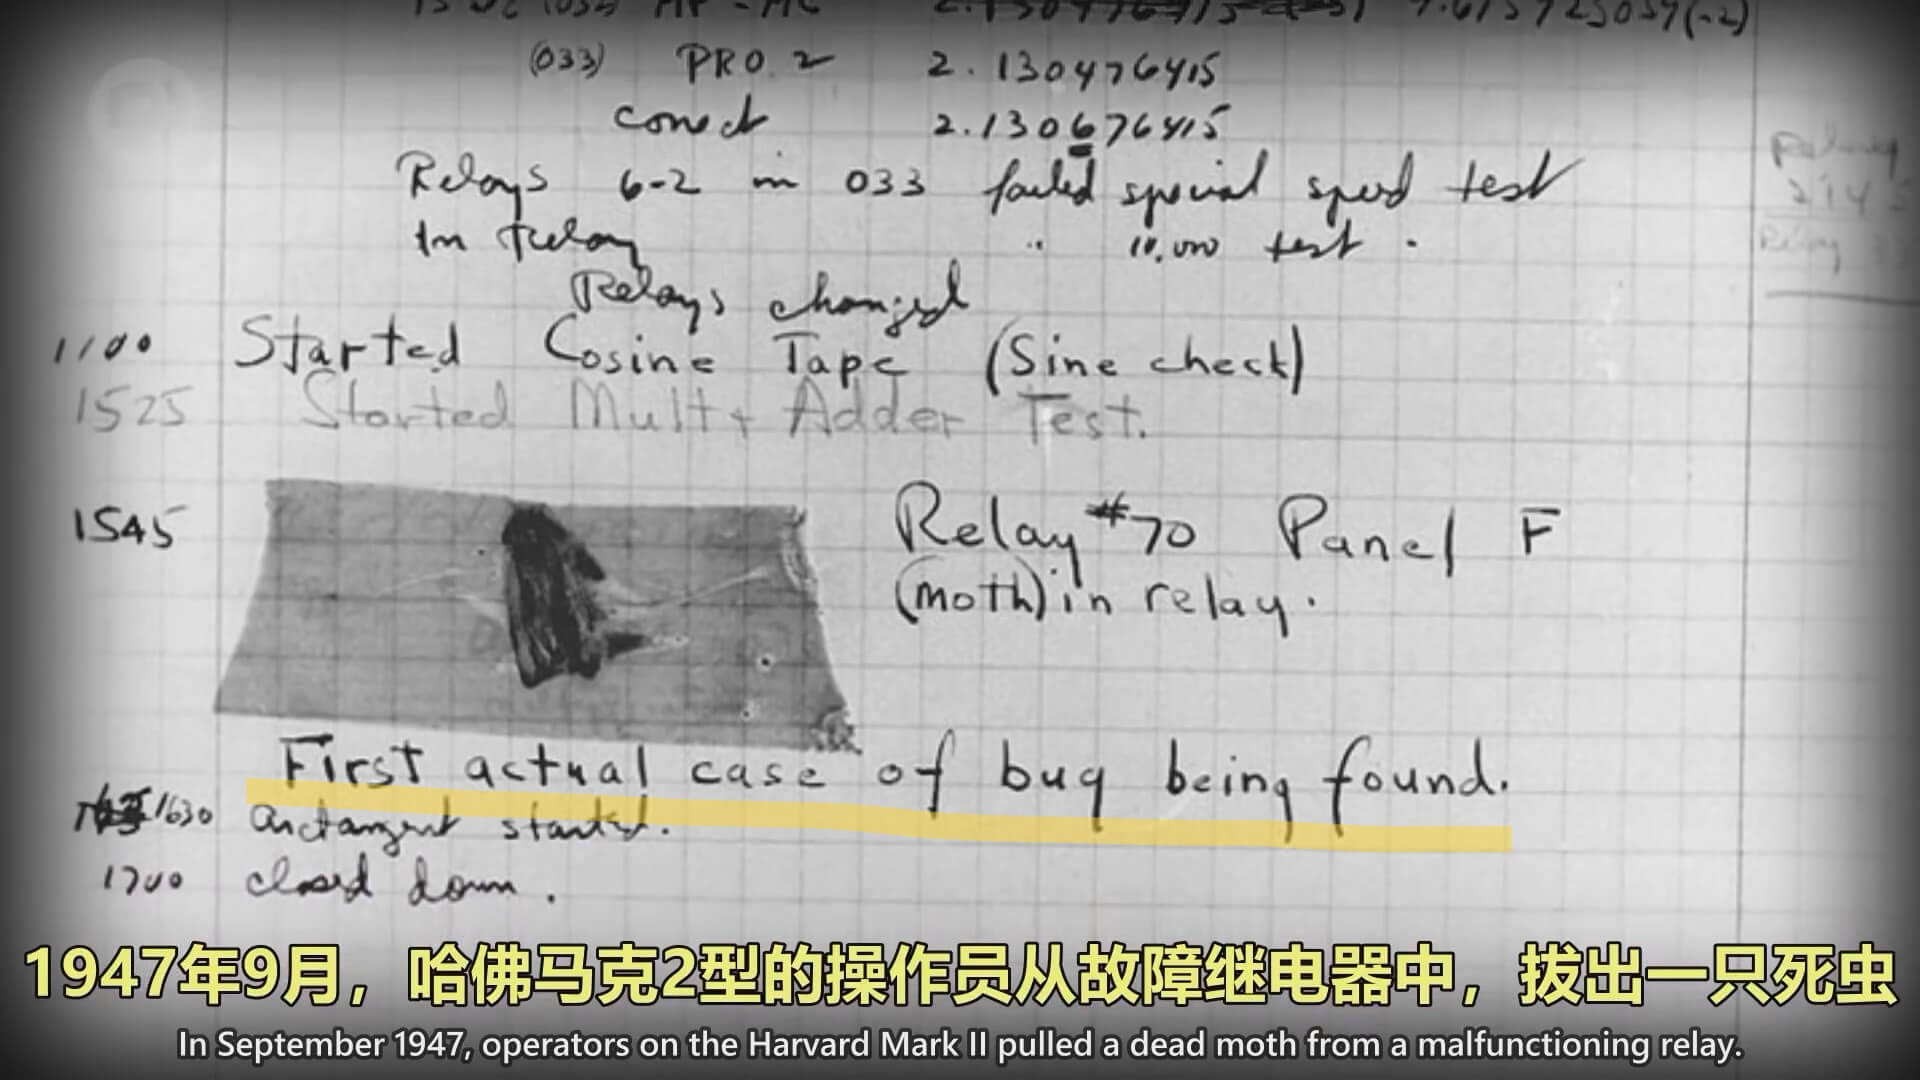 (033) PRO 2 2.130476415
conect 2.130676415
Relays 6-2 in 033 failed special speed test
In Relay " 10,000 test .
Relays changed
1100 Started Cosine Tape (Sine check)
1525 Started Mult + Adder Test.
1545 Relay #70 Panel F
(moth) in relay.
First actual case of bug being found.
1630 arctangent started.
1700 closed down.
1947年9月，哈佛马克2型的操作员从故障继电器中，拔出一只死虫
In September 1947, operators on the Harvard Mark II pulled a dead moth from a malfunctioning relay.